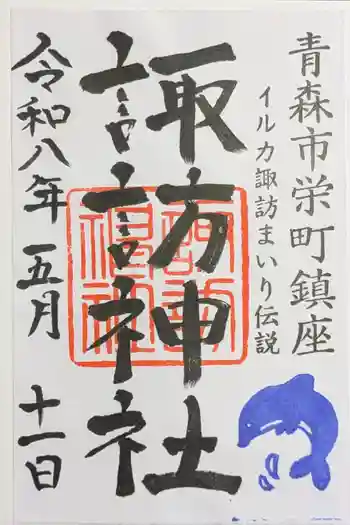 青森市栄町鎮座
イルカ諏訪まいり伝説
諏訪神社
令和八年五月十一日